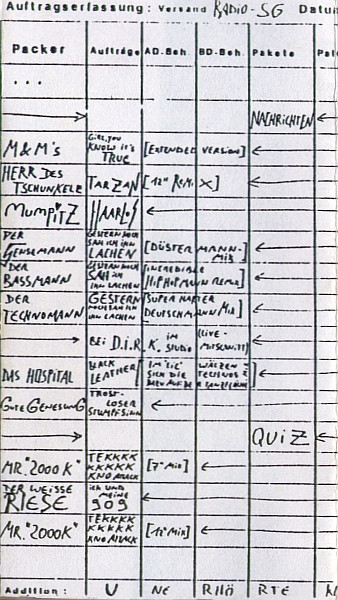 Auftragserfassung: Versand RADIO-SG Datu
Packer Aufträge AD.Beh. BD-Beh. Pakete Pak
...
NACHRICHTEN
M&M's GIRL, YOU KNOW IT'S TRUE [EXTENDED VERSION]
HERR DES TSCHUNKELS TARZAN [12" REMIX]
MUMPITZ HAARLOS
DER GENSEMANN GESTERN NOCH SAH ICH IHN LACHEN [DÜSTERMANN-MIX]
DER BASSMANN GESTERN NOCH SAH ICH IHN LACHEN [INCREDIBLE HIPHOPMANN REMIX]
DER TECHNOMANN GESTERN NOCH SAH ICH IHN LACHEN [SUPER HAMMER DEUTSCHMANN MIX]
BEI D.i.R.K. IM STUDIO (LIVE-MITSCHNITT)
DAS HOSPITAL BLACK LEATHER [IM "CIC" WÄLZEN SICH DIE TECHNOS
GUTE GENESUNG TROST-LOSER STUMPFSINN
QUIZ
MR. "2000K" TEKKKK KKKKKK KNOARACK [7" MIX]
DER WEISSE RIESE ICH UND MEINE 909
MR. "2000K" TEKKKK KKKKKK KNOARACK [12" MIX]
Addition: U NE RIIÖ RTE